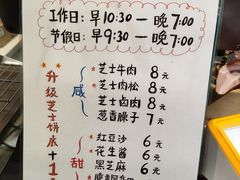 工作日：早10:30－晚7:00
节假日：早9:30－晚7:00
升级芝士饼底+1
咸
芝士牛肉 8元
芝士肉松 8元
芝士卤肉 8元
葱香臊子 7元
甜
红豆沙 6元
花生酱 6元
黑芝麻 6元